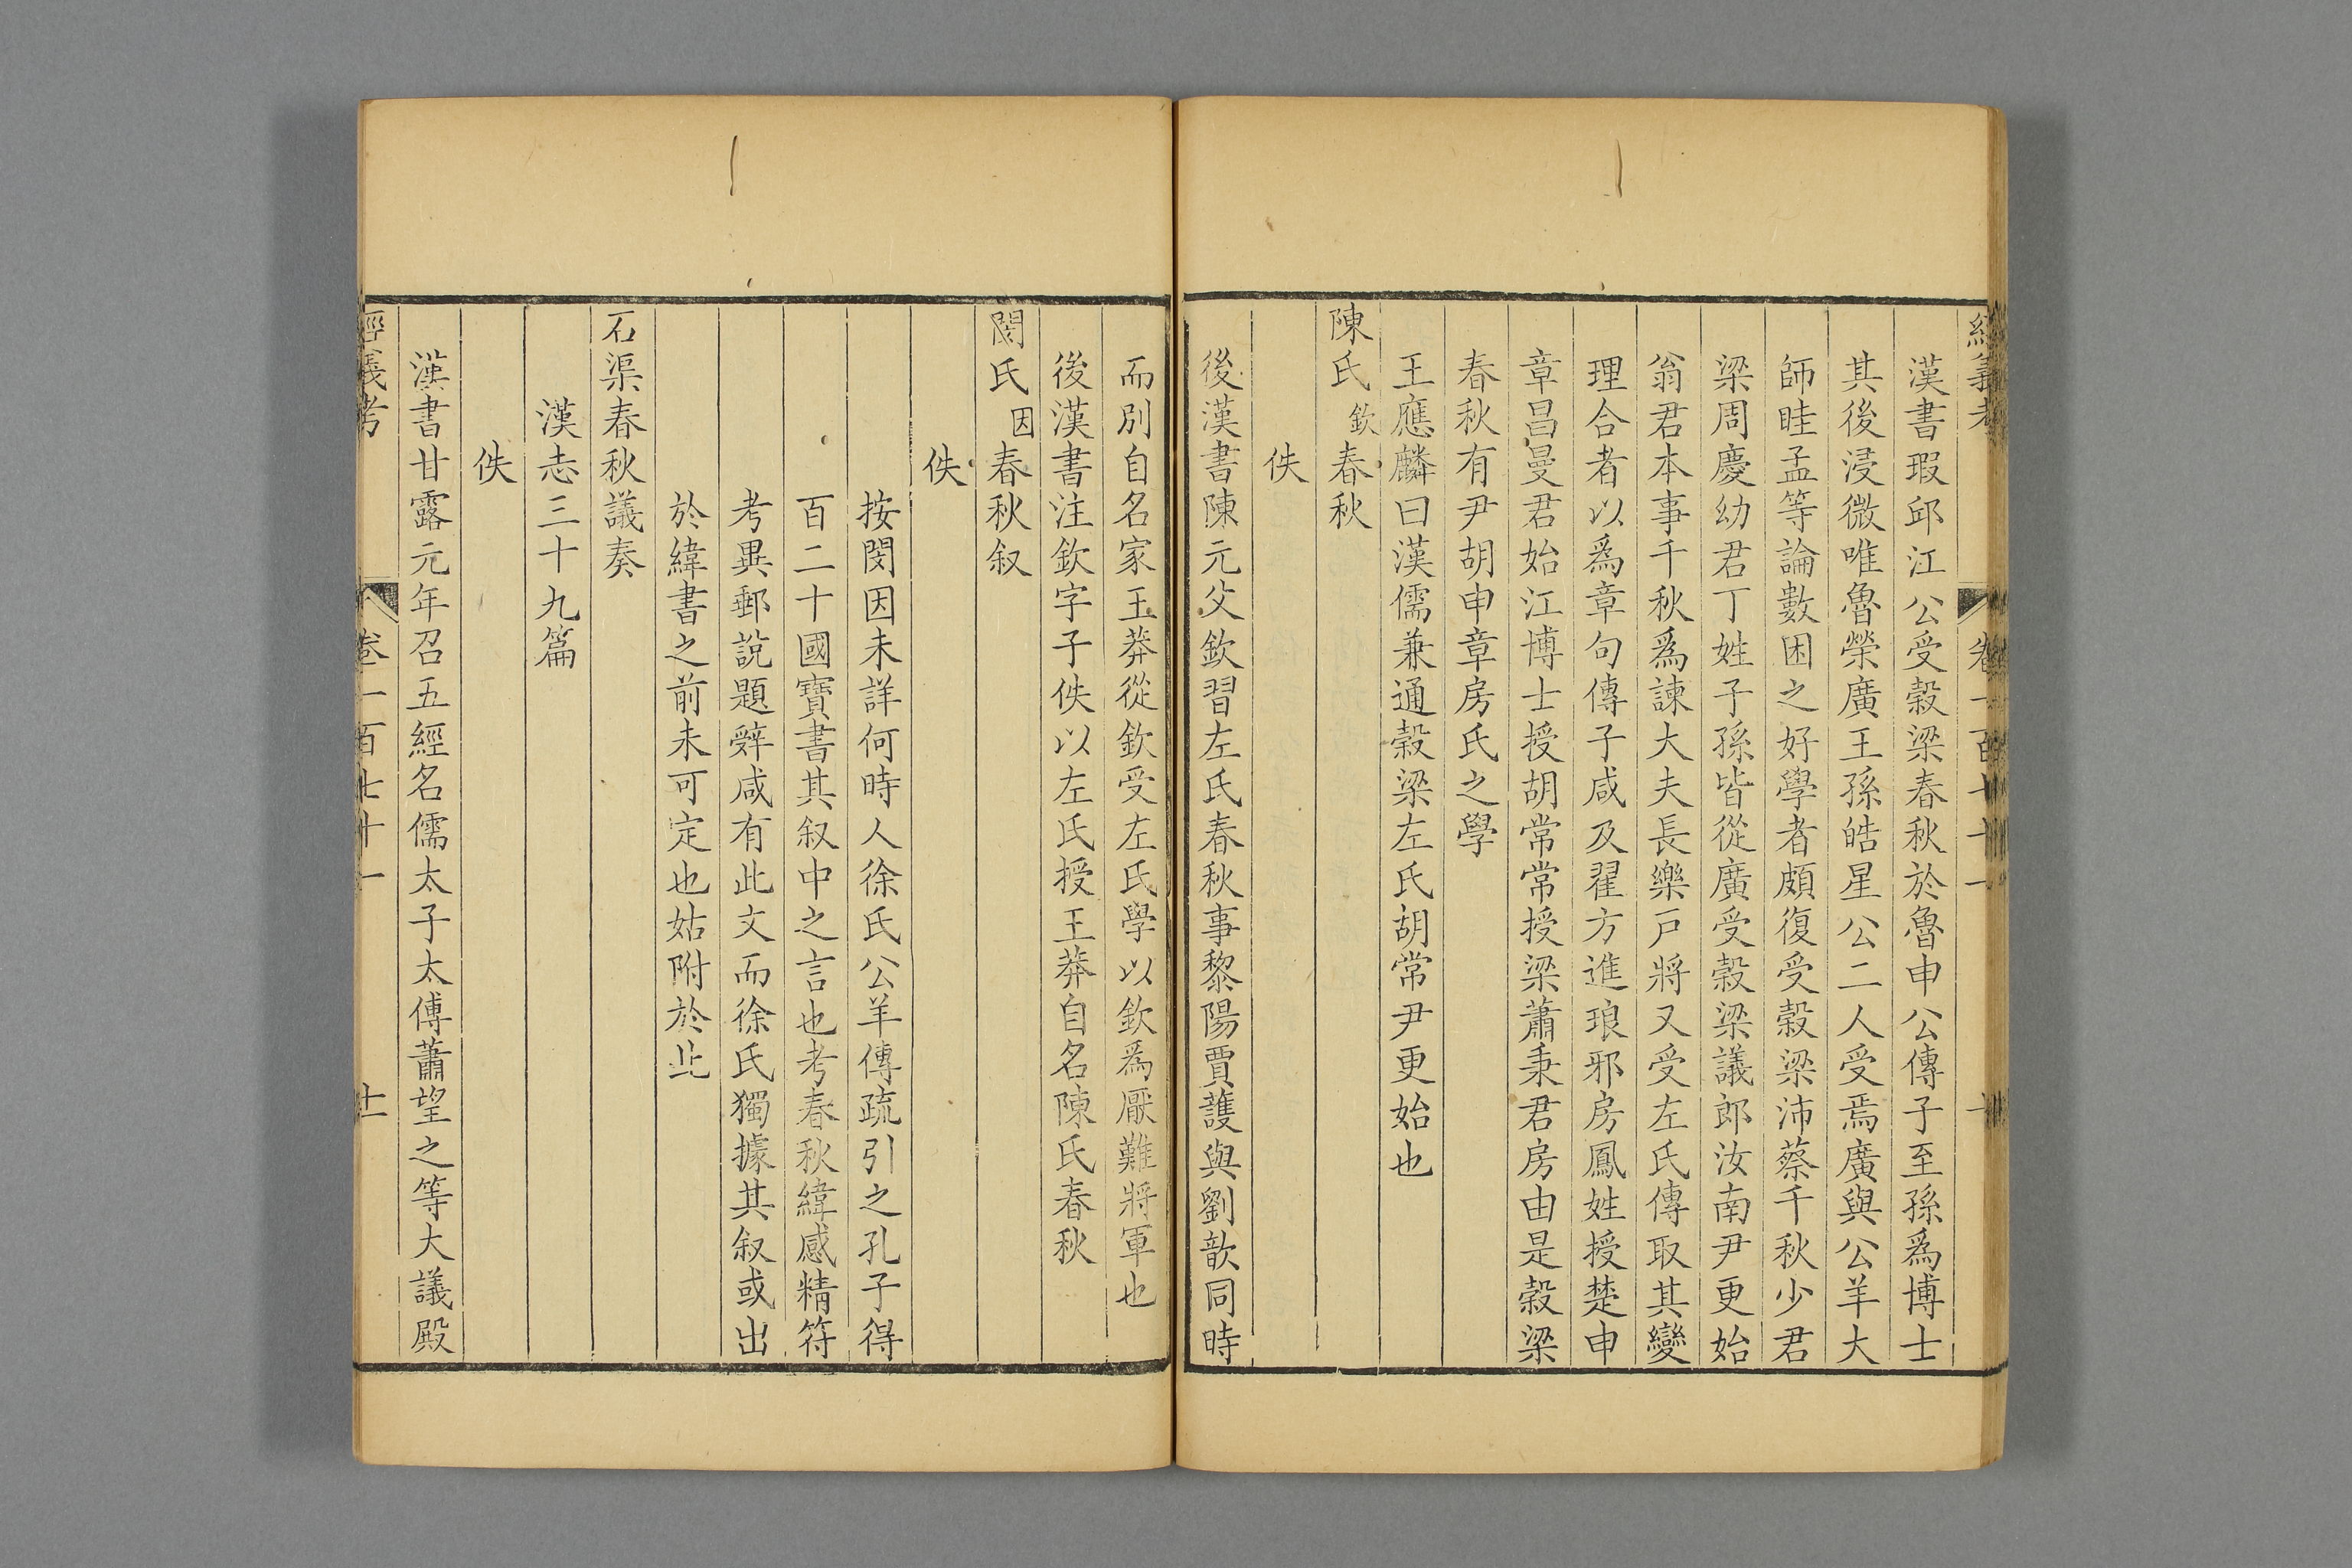 經義考 卷一百七十一 十
漢書瑕邱江公受穀梁春秋於魯申公傳子至孫爲博士
其後浸微唯魯榮廣王孫皓星公二人受焉廣與公羊大
師眭孟等論數困之好學者頗復受穀梁沛蔡千秋少君
梁周慶幼君丁姓子孫皆從廣受穀梁議郎汝南尹更始
翁君本事千秋爲諫大夫長樂戸將又受左氏傳取其變
理合者以爲章句傳子咸及翟方進琅邪房鳳姓授楚申
章昌曼君始江博士授胡常常授梁蕭秉君房由是穀梁
春秋有尹胡申章房氏之學
王應麟曰漢儒兼通穀梁左氏胡常尹更始也
陳氏欽春秋
佚
後漢書陳元父欽習左氏春秋事黎陽賈護與劉歆同時
而別自名家王莽從欽受左氏學以欽爲厭難將軍也
後漢書注欽字子佚以左氏授王莽自名陳氏春秋
閔氏因春秋叙
佚
按閔因未詳何時人徐氏公羊傳疏引之孔子得
百二十國寶書其叙中之言也考春秋緯感精符
考異郵說題辤咸有此文而徐氏獨據其叙或出
於緯書之前未可定也姑附於此
石渠春秋議奏
漢志三十九篇
佚
漢書甘露元年召五經名儒太子太傅蕭望之等大議殿
經義考 卷一百七十一 十一